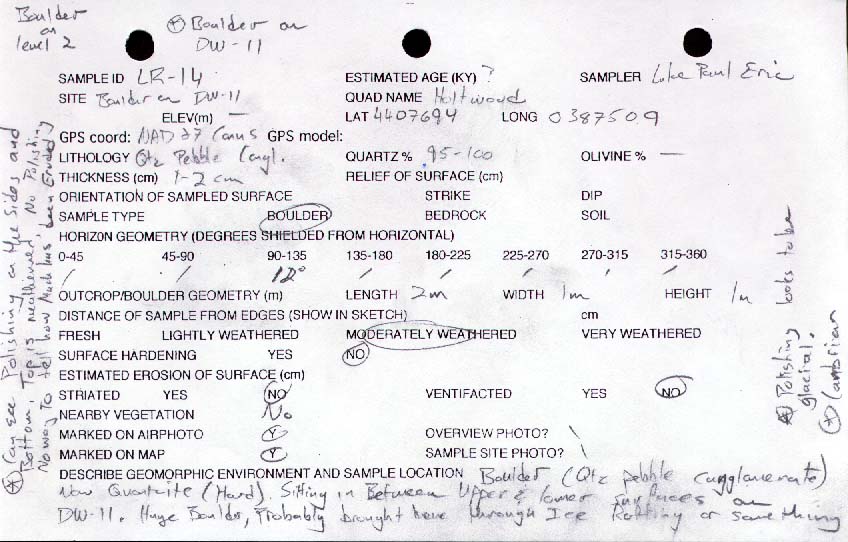 Boulder
on
level 2
* Boulder on
DW-11
SAMPLE ID LR-14 ESTIMATED AGE (KY) ? SAMPLER Luke Paul Eric
SITE Boulder on DW-11 QUAD NAME Holtwood
ELEV(m) — LAT 4407694 LONG 0387509
GPS coord: NAD 27 Conus GPS model:
LITHOLOGY Qtz Pebble Congl. QUARTZ % 95-100 OLIVINE % —
THICKNESS (cm) 1-2 cm RELIEF OF SURFACE (cm)
ORIENTATION OF SAMPLED SURFACE STRIKE DIP
SAMPLE TYPE BOULDER BEDROCK SOIL
HORIZON GEOMETRY (DEGREES SHIELDED FROM HORIZONTAL)
0-45 45-90 90-135 135-180 180-225 225-270 270-315 315-360
/ / 12° / / / / /
OUTCROP/BOULDER GEOMETRY (m) LENGTH 2m WIDTH 1m HEIGHT 1m
DISTANCE OF SAMPLE FROM EDGES (SHOW IN SKETCH) cm
FRESH LIGHTLY WEATHERED MODERATELY WEATHERED VERY WEATHERED
SURFACE HARDENING YES NO
ESTIMATED EROSION OF SURFACE (cm)
STRIATED YES NO VENTIFACTED YES NO
NEARBY VEGETATION No
MARKED ON AIRPHOTO Y OVERVIEW PHOTO? \
MARKED ON MAP Y SAMPLE SITE PHOTO? \
DESCRIBE GEOMORPHIC ENVIRONMENT AND SAMPLE LOCATION Boulder (Qtz pebble cugglomerate)
Now Quartzite (Hard). Sitting in Between Upper & lower surfaces on
DW-11. Huge Boulder, Probably brought here through Ice Rafting or something
* Can see Polishing on the sides and
Bottom, Top is weathered. No Polishing
No way to tell how much has been Eroded
* Polishing looks to be
glacial.
* Cambrian